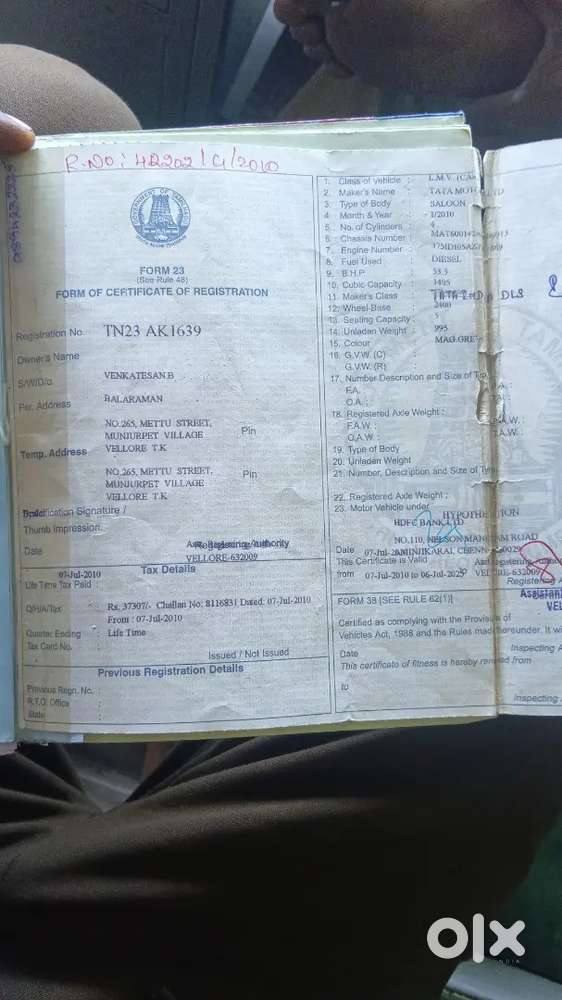 R.NO: 42202/C1/2010
GOVERNMENT OF TAMILNADU
FORM 23
(See Rule 48)
FORM OF CERTIFICATE OF REGISTRATION
Registration No. TN23 AK1639
Owner's Name
S/W/D/o VENKATESAN B
Per. Address BALARAMAN
NO.265, METTU STREET,
MUNJURPET VILLAGE Pin
Temp. Address VELLORE T.K
NO.265, METTU STREET, Pin
MUNJURPET VILLAGE
VELLORE T.K
Signature /
Thumb Impression.
Registering Authority
Date VELLORE-632009
07-Jul-2010 Tax Details
Life Time Tax Paid
Q/H/A/Tax : Rs. 37307/- Challan No: 8116831 Dated: 07-Jul-2010
From : 07-Jul-2010
Quarter Ending : Life Time
Tax Card No. :
Issued / Not Issued
Previous Registration Details
Previous Regn. No. :
R.T.O. Office :
State :
1. Class of vehicle : L.M.V. (CAR
2. Maker's Name TATA MOTO LTD
3. Type of Body SALOON
4. Month & Year : 1/2010
5. No. of Cylinders : 4
6. Chassis Number :
7. Engine Number :
8. Fuel Used : DIESEL
9. B.H.P : 53.3
10. Cubic Capacity : 1405
11. Maker's Class : DLS
12. Wheel-Base : 2400
13. Seating Capacity : 5
14. Unladen Weight : 995
15. Colour
16. G.V.W. (C)
G.V.W. (R)
17. Number Description and Size of
F.A. :
O.A. :
18. Registered Axle Weight :
F.A.W. :
O.A.W. :
19. Type of Body
20. Unladen Weight
21. Number, Description and Size of
22. Registered Axle Weight :
23. Motor Vehicle under
HDFC BANK LTD
NO.110, NELSON MANICKAM ROAD
Date 07-Jul- AMINJIKARAI, CHENN
This Certificate is Valid
from 07-Jul-2010 to 06-Jul-2025 VELLORE-632009
Registering A
Assistan
VEL
FORM 38 [SEE RULE 62(1)]
Certified as complying with the Provisions of
Vehicles Act, 1988 and the Rules made hereunder. It wi
Date Inspecting A
This certificate of fitness is hereby renewed from
to
Inspecting
olx
INDIA